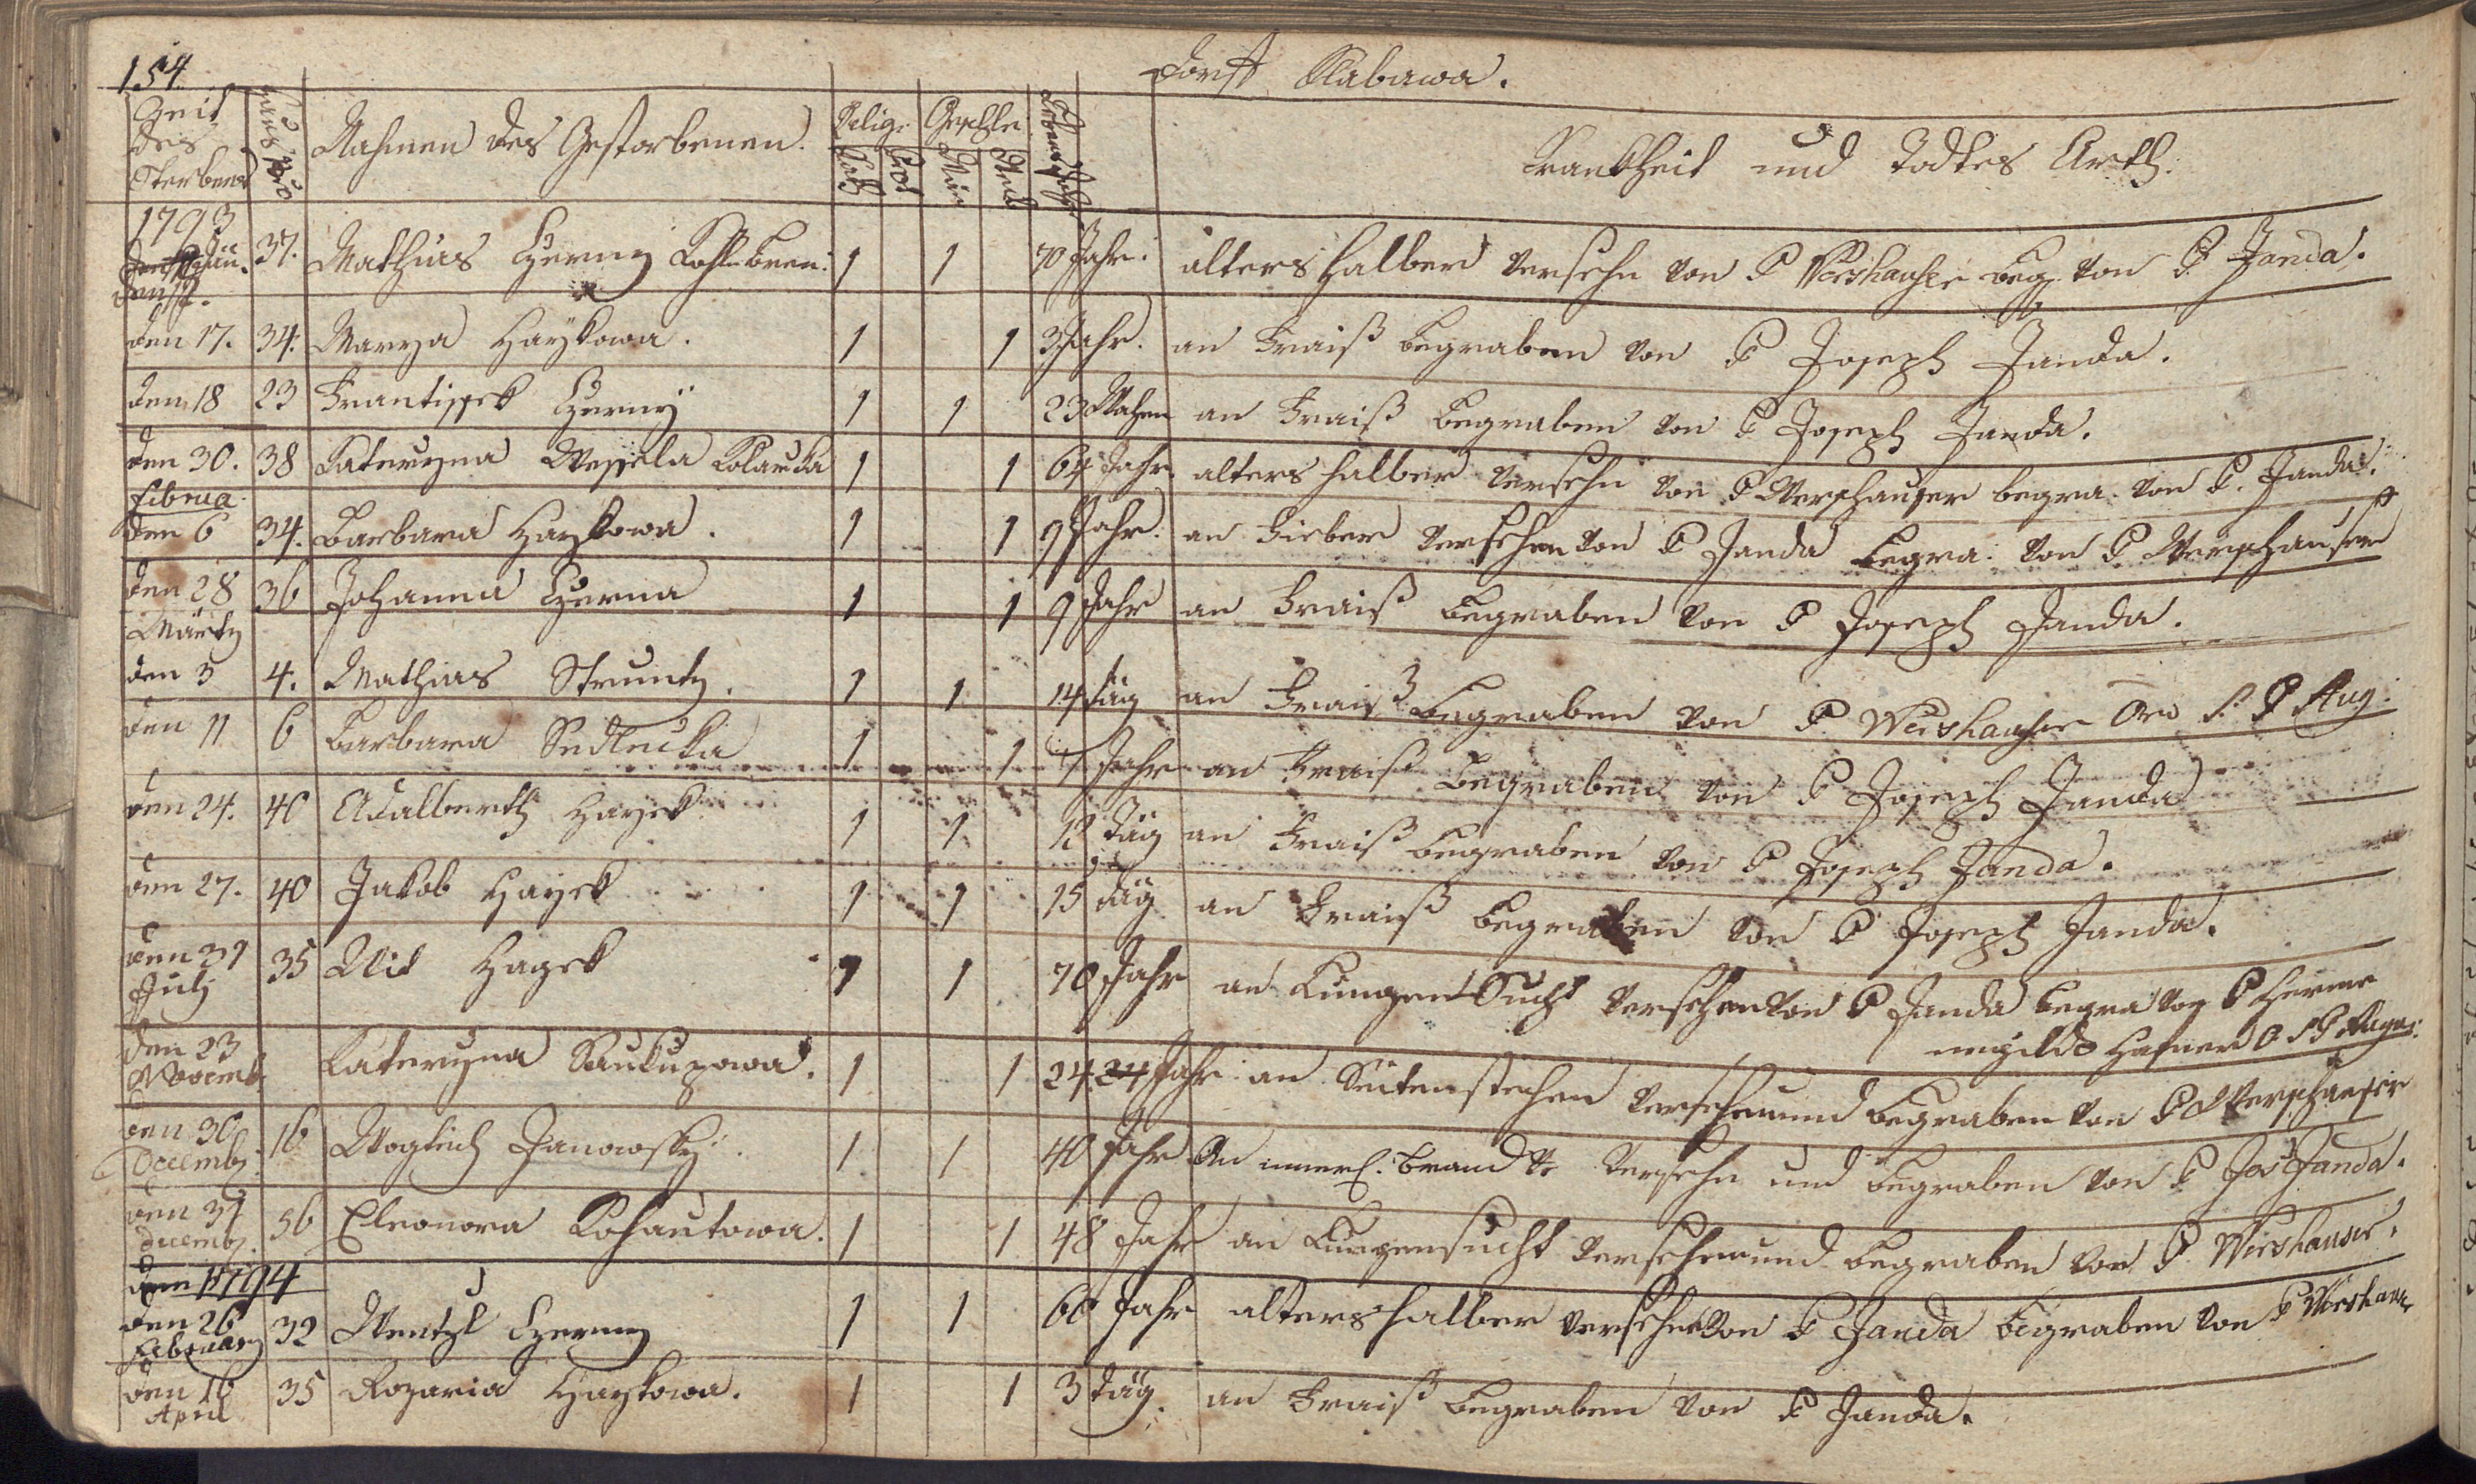 154.
Dorff Klabawa.
Zeit des Sterbens Haus Nro Nahmen des Gestorbenen. Relig: Kath Prot Geschle Män Weib Lebens Jahr Krankheit und Todtes Arth.
1793
den 37. Mathias Czerny 1 1 70 Jahr. alters halber versehn von P Weishauser beg. von P. Janda.
den 17. 34. Marya Haykowa. 1 1 3 Jahr. an Fraiß begraben von P Joseph Janda.
den 18 23 Frantissek Czerny 1 1 23 Wochen an Fraiß begraben von P Joseph Janda.
den 30. 38 Kateryna Wessela 1 1 64 Jahr. alters halber versehn von P Werschauser begra. von P. Janda.
Februa.
den 6 34. Barbara Haykowa. 1 1 9 Jahr. an Fieber versehen von P Janda begra. von P Werschauser
den 28 36 Johanna Czerna 1 1 9 Jahr an Fraiß begraben von P Joseph Janda.
Märtz
den 3 4. Mathias Struntz. 1 1 14 täg an Fraiß begraben von P. Weishauser Ord S. P Aug.
den 11 6 Barbara Sedlecka 1 1 7 Jahr an Fraiß begraben von P Joseph Janda
den 24. 40 Adalberth Hayek 1 1 12 täg an Fraiß begraben von P Joseph Janda.
den 27. 40 Jakob Hayek 1 1 15 täg an Fraiß begraben von P Joseph Janda.
den 31 July 35 Wit Hagek 1 1 70 Jahr an Lungen Sucht versehen von P Janda begra von P Herme
negild Hafner O. S P Augus:
den 23 Novemb. Kateryna Saukupowa. 1 1 24 24 Jahr an Seitenstechen versehen und begraben von P Werschauser
den 30 Decemb. 16 Wogtiech Janowsky. 1 1 40 Jahr An innerl. Brand versehn und begraben von P Jos Janda.
den 31 Decemb. 56 Eleonora Kohautowa. 1 1 48 Jahr an Lungensucht versehen und begraben von P. Wirshauser.
1794
den 26 February 32 Wentzl Czerny 1 1 60 Jahr alters halber versehen von P Janda begraben von P Wirshaus
den 16 April 35 Rozaria Haykowa. 1 1 3 täg. an Fraiß begraben von P Janda.